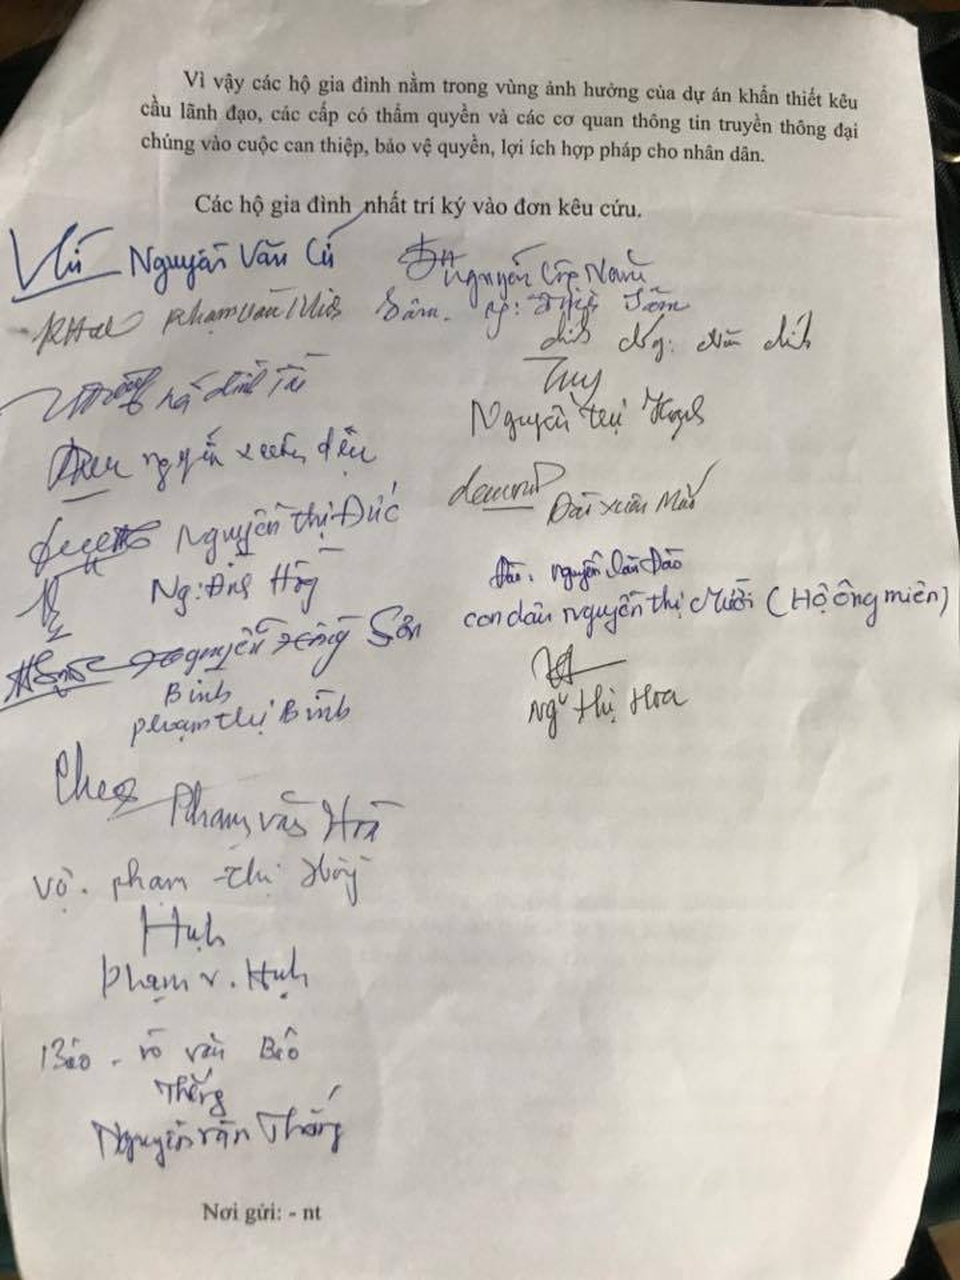 Vì vậy các hộ gia đình nằm trong vùng ảnh hưởng của dự án khẩn thiết kêu
cầu lãnh đạo, các cấp có thẩm quyền và các cơ quan thông tin truyền thông đại
chúng vào cuộc can thiệp, bảo vệ quyền, lợi ích hợp pháp cho nhân dân.
Các hộ gia đình nhất trí ký vào đơn kêu cứu.
Nguyễn Văn Cú
Nguyễn
Phạm Văn
Sâm. Ng: Thị Sâm
dich Ng: Văn dich
hà đình Tài
Nguyễn thị
nguyễn xuân diệu
Đài xuân
Nguyễn thị Đức
Ng: Đình Hồng
Đào. nguyễn văn Đào
con dâu nguyễn thị Mười (Hộ ông miên)
nguyễn Hồng Sơn
Bình
phạm thị Bình
Ng thị Hoa
Phạm văn Hoà
Vợ. phạm thị
Hụh
phạm v. Hụh
Báo. võ văn Báo
Thắng
Nguyễn văn Thắng
Nơi gửi: - nt